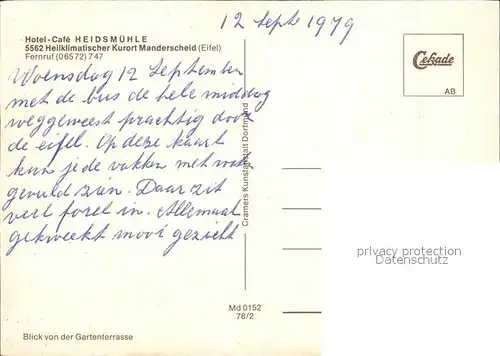 12 Septe 1979
Hotel-Café HEIDSMÜHLE
5562 Heilklimatischer Kurort Manderscheid (Eifel)
Fernruf (06572) 747
Cekade
AB
Woensdag 12 September
met de bus de hele middag
weggeweest prachtig door
de eifel. Op deze kaart
kun je de vakken met water
gevuld zien. Daar zit
veel forel in. Allemaal
gekweekt mooi gezicht
Cramers Kunstanstalt Dortmund
privacy protection
Datenschutz
Md 0152
78/2
Blick von der Gartenterrasse